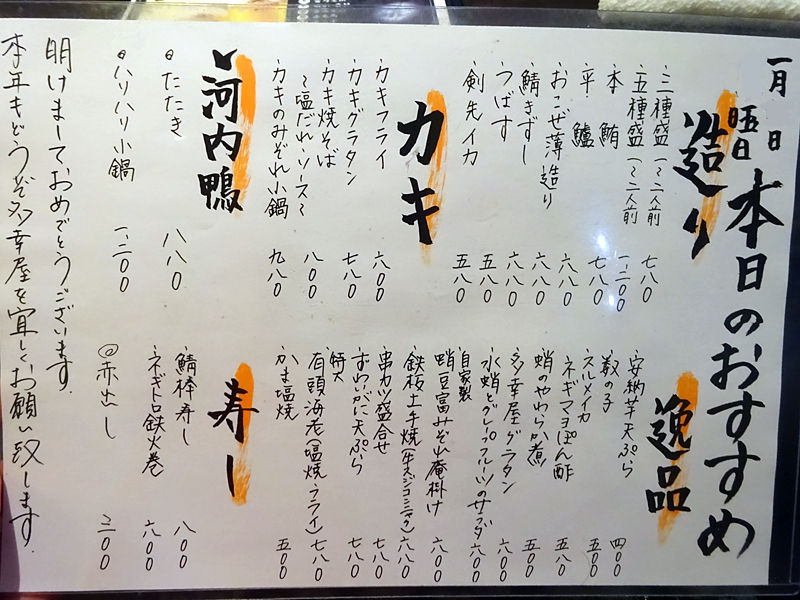 一月 日 曜日
本日のおすすめ
造り
・三種盛(~二人前 七八〇
・五種盛(~二人前 一、二〇〇
・本鮪 七八〇
・平鱸 六八〇
・おこぜ薄造り 六八〇
・鯖きずし 六八〇
・つばす 五八〇
・剣先イカ 五八〇
カキ
・カキフライ 六〇〇
・カキグラタン 七八〇
・カキ焼そば 八〇〇
~塩だれ、ソース~
・カキのみぞれ小鍋 九八〇
河内鴨
◎たたき 八八〇
◎ハリハリ小鍋 一、二〇〇
逸品
・安納芋天ぷら 四〇〇
・数の子 五〇〇
・スルメイカ
ネギマヨぽん酢 五八〇
・蛸のやわらか煮 五〇〇
・多幸屋グラタン 六〇〇
・水蛸とグレープフルーツのサラダ 六〇〇
・自家製
蛸豆富みぞれ庵掛け 六〇〇
・鉄板土手焼(牛スジコンニャク) 六八〇
・串カツ盛合せ 七八〇
・ずわいがに天ぷら 七八〇
・特大
有頭海老(塩焼・フライ) 七八〇
・かま塩焼 五〇〇
寿し
・鯖棒寿し 八〇〇
・ネギトロ鉄火巻 六〇〇
◎赤出し 二〇〇
明けましておめでとうございます。
本年もどうぞ多幸屋を宜しくお願い致します。